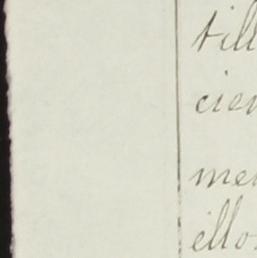 till
cien
men
ellos